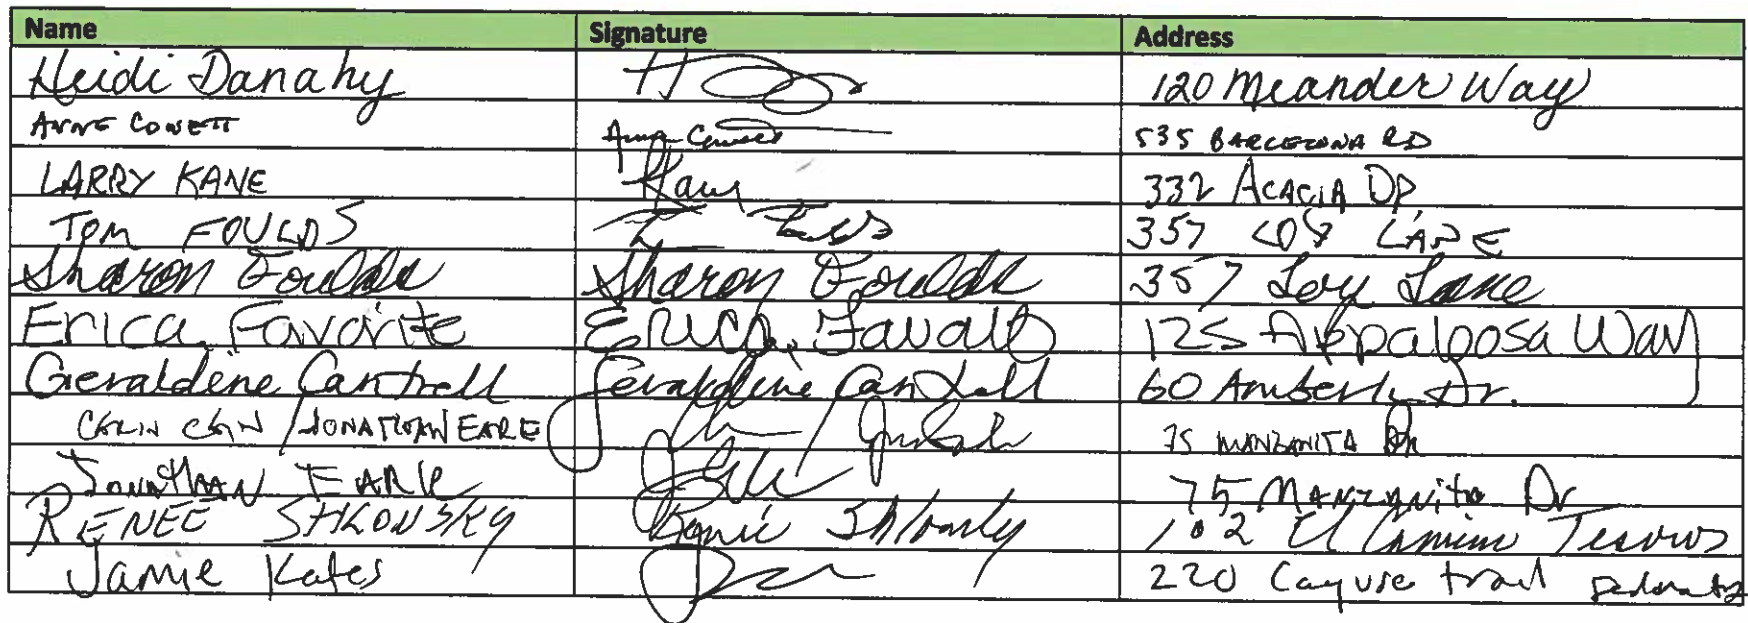 Name Signature Address
Heidi Danahy 120 Meander Way
ANNE COWETT 535 BARCELONA RD
LARRY KANE 332 ACACIA DR
TOM FOULDS 357 LOY LANE
Sharon Foulds Sharon Foulds 357 Loy Lane
Erica Favorite Erica Favorite 125 Appaloosa Way
Geraldine Cantrell Geraldine Cantrell 60 Amberly Dr.
/ JONATHAN EARLE 75 MANZANITA DR
JONATHAN EARLE 75 Manzanita Dr
RENEE 102 El Camino Tesoros
Jamie Kates 220 Cayuse trail Sedona AZ